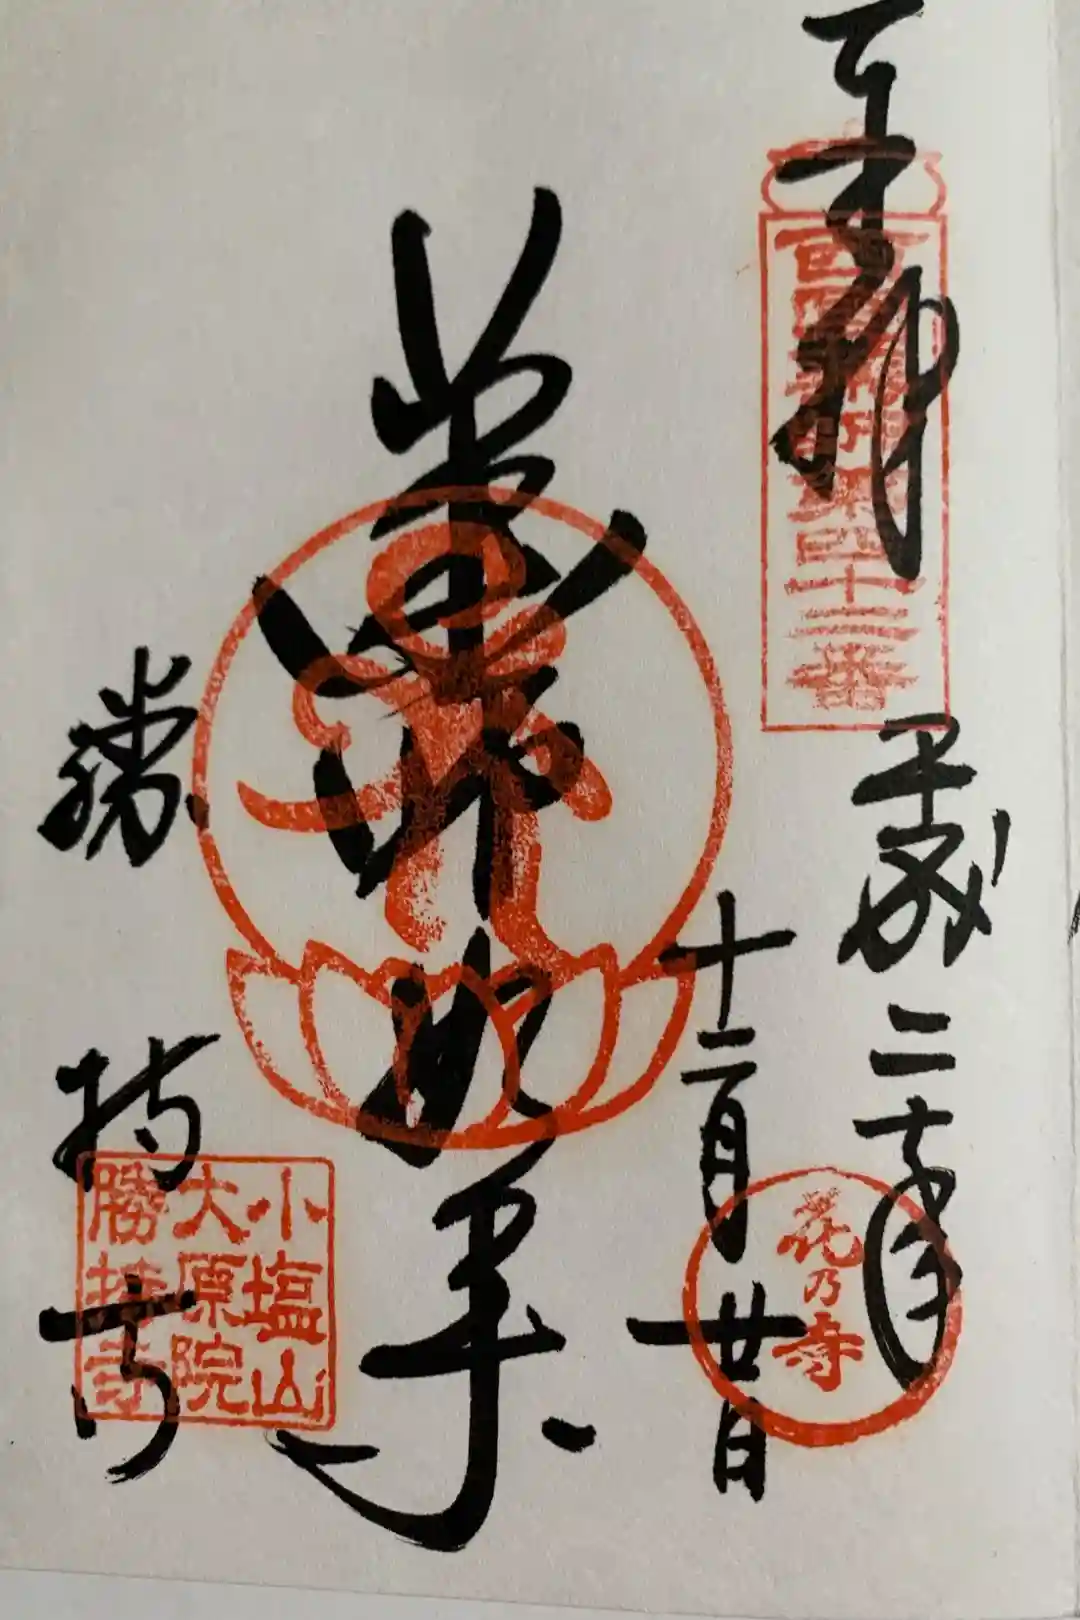 奉拝
西国薬師第四十二番
平成二十年
十二月廿日
花乃寺
薬師如来
勝持寺
小塩山
大原院
勝持寺